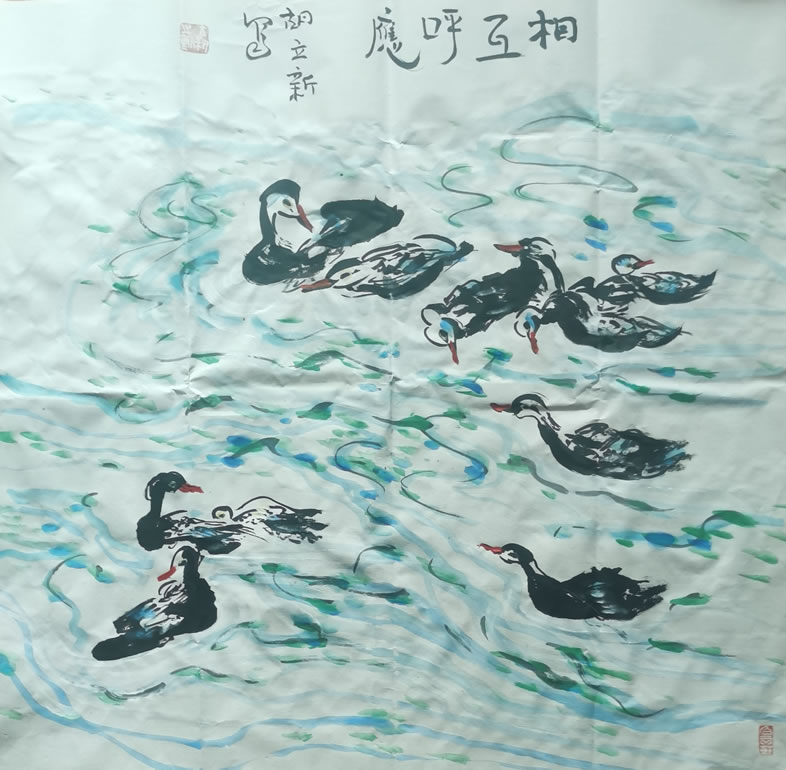 相互呼應
胡立新
写